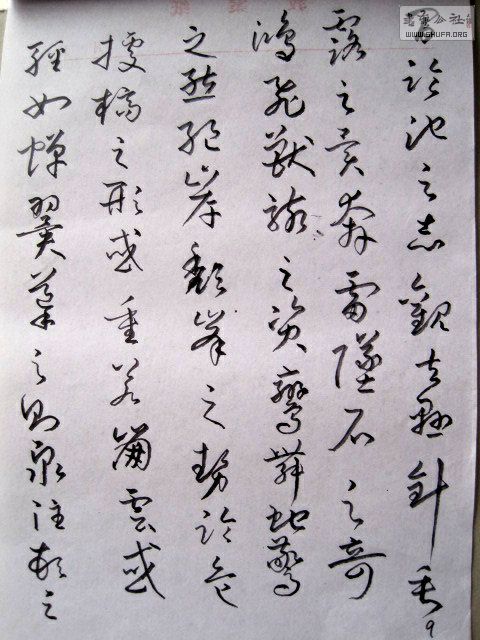 臨池之志觀夫懸針垂
露之異奔雷墜石之奇
鴻飛獸駭之資鸞舞蛇驚
之態絕岸頹峯之勢臨危
據槁之形或重若崩雲或
輕如蟬翼導之則泉注頓之
WWW.SHUFA.ORG